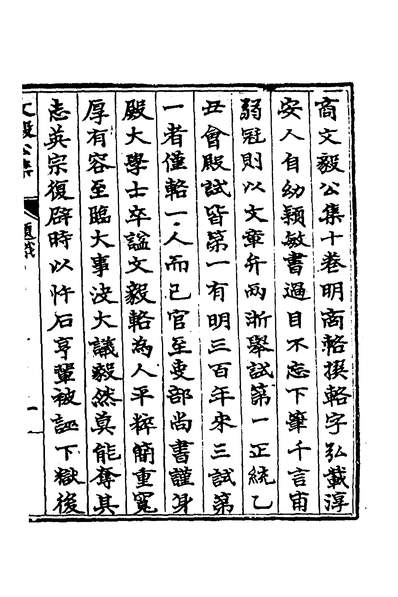 商文毅公集十卷明商輅撰輅字弘載淳
安人自幼穎敏書過目不忘下筆千言甫
弱冠則以文章弁兩浙舉試第一正統乙
丑會殿試皆第一有明三百年來三試第
一者僅輅一人而已官至吏部尚書謹身
殿大學士卒謚文毅輅為人平粹簡重寬
厚有容至臨大事决大議毅然莫能奪其
志英宗復辟時以忤石亨輩被誣下獄後
文毅公集